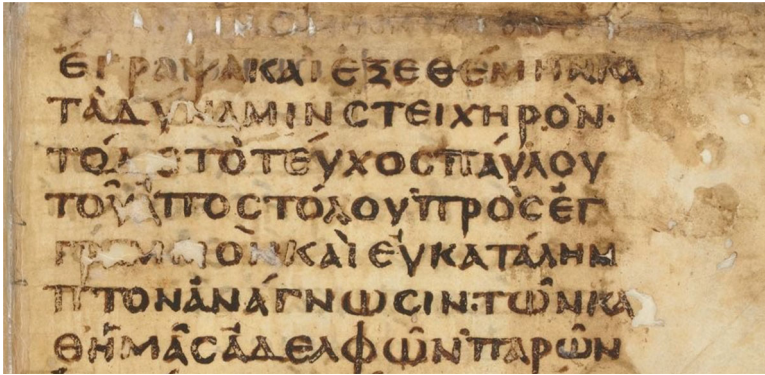 ἘΓΡΑΨΑΚΑῚΕΞΕΘΈΜΗΝΚΑ
ΤᾺΔΎΝΑΜΙΝϹΤΕΙΧΗΡῸΝ·
ΤΌΔΕΤῸΤΕΎΧΟϹΠΑΎΛΟΥ
ΤΟΥ͂ἈΠΟϹΤΌΛΟΥΠΡῸϹἘΓ
ΓΡΑΜΜῸΝΚΑῚΕΥ̓ΚΑΤΆΛΗΜ
ΠΤΟΝἈΝΆΓΝΩϹΙΝ:ΤΩ͂ΝΚΑ
ΘΗ͂ΜΑ͂ϹἈΔΕΛΦΩ͂ΝΠΑΡΩ͂Ν